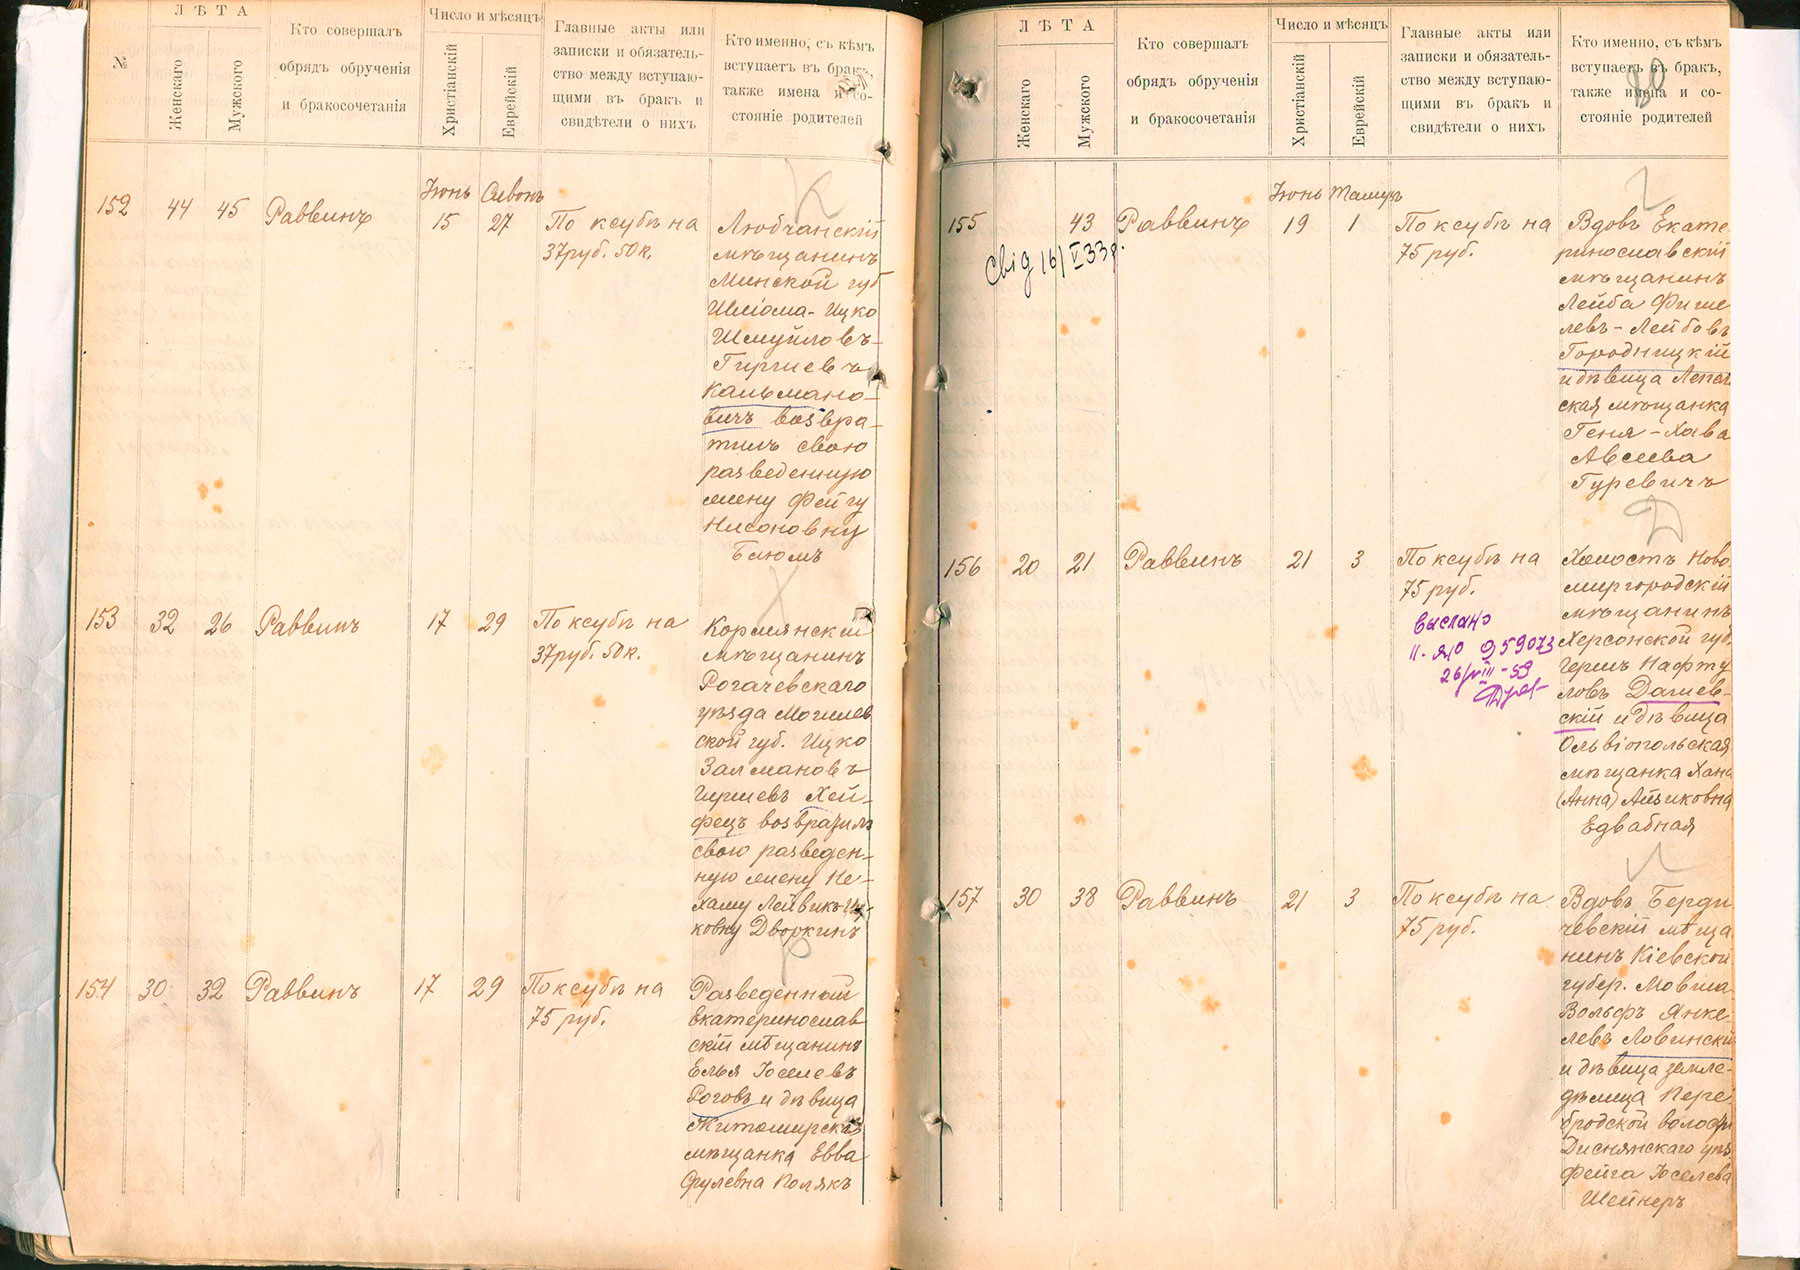 №
ЛѢТА
Женскаго
Мужского
Кто совершалъ
обрядъ обрученія
и бракосочетанія
Число и мѣсяцъ
Христіанскій
Еврейскій
Главные акты или
записки и обязатель-
ство между вступаю-
щими въ бракъ и
свидѣтели о нихъ
Кто именно, съ кѣмъ
вступаетъ въ бракъ,
также имена и со-
стояніе родителей
Іюнь Сивонъ
152 44 45 Раввинъ 15 27 По ксубѣ на
37 руб. 50 к.
Любчанскій
мѣщанинъ
Минской губ
Шліома-Ицко
Шмуйловъ-
Гиршевъ
Кальмано-
вичъ возвра-
тилъ свою
разведенную
жену Фейгу
Нисоновну
Блюмъ
153 32 26 Раввинъ 17 29 По ксубѣ на
37 руб. 50 к.
Кормянскій
мѣщанинъ
Рогачевскаго
уѣзда Могилев
ской губ. Ицко
Залмановъ
Гиршевъ Хей-
фецъ возвратилъ
свою разведен-
ную жену Не-
хаму Лейвикъ-Иц-
ковну Дворкинъ
154 30 32 Раввинъ 17 29 По ксубѣ на
75 руб.
Разведенный
Екатеринослав
скій мѣщанинъ
Елья Іоселевъ
Роговъ и дѣвица
Житомирская
мѣщанка Евва
Срулевна Полякъ
ЛѢТА
Женскаго
Мужского
Кто совершалъ
обрядъ обрученія
и бракосочетанія
Число и мѣсяцъ
Христіанскій
Еврейскій
Главные акты или
записки и обязатель-
ство между вступаю-
щими въ бракъ и
свидѣтели о нихъ
Кто именно, съ кѣмъ
вступаетъ въ бракъ,
также имена и со-
стояніе родителей
80
Іюнь Тамузъ
155 43 Раввинъ 19 1 По ксубѣ на
75 руб.
Свід 16/V 33р.
Вдовъ Екате
ринославскій
мѣщанинъ
Лейба Фише
левъ-Лейбовъ
Городницкій
и дѣвица Лепель
ская мѣщанка
Геня-Хава
Авсеева
Гуревичъ
156 20 21 Раввинъ 21 3 По ксубѣ на
75 руб.
Выслано
II-ЯЮ 959073
26/VIII-59
Холостъ Ново
миргородскій
мѣщанинъ
Херсонской губ.
Гершъ Нафту
ловъ Дашев-
скій и дѣвица
Ольвіопольская
мѣщанка Хана
(Анна) Айзиковна
Едвабная
157 30 38 Раввинъ 21 3 По ксубѣ на
75 руб.
Вдовъ Берди
чевскій мѣща
нинъ Кіевской
губер. Мовша
Вольфъ Янке
левъ Ловинскій
и дѣвица земле-
дѣлица Пере
бродской волости
Диснянскаго уѣ.
Фейга Іоселева
Шейнеръ